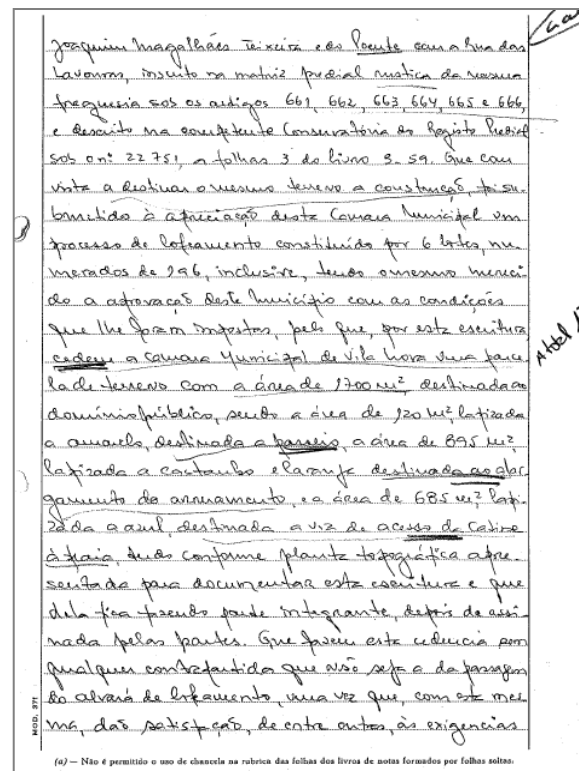 Joaquim Magalhães Teixeira e do Poente com a Rua das
Lavouras, inscrito na matriz predial rustica da mesma
freguesia sob os artigos 661, 662, 663, 664, 665 e 666,
e descrito na competente Conservatória do Registo Predial
sob o nº 22 751, a folhas 3 do livro 3-59. Que com
vista a destinar o mesmo terreno a construção, foi su-
bmetido à apreciação desta Camara Municipal um
processo de loteamento constituido por 6 lotes, nu-
merados de 1 a 6, inclusive, tendo o mesmo mereci-
do a aprovação deste Municipio com as condições
que lhe foram impostas, pelo que, por esta escritura
cedem a Camara Municipal de Vila Nova uma parce-
la de terreno com a área de 1700 m², destinada ao
dominio público, sendo a área de 120 m², lapizada
a amarelo, destinada a passeio, a área de 895 m²,
lapizada a castanho e laranja destinada ao alar-
gamento do arruamento, e a área de 685 m² lapi-
zada a azul, destinada a via de acesso da
à praia, tudo conforme planta topográfica apre-
sentada para documentar esta escritura e que
dela fica fazendo parte integrante, depois de assi-
nada pelas partes. Que fazem esta cedencia sem
qualquer contrapartida que não seja a da passagem
do alvará de loteamento, uma vez que, com este mes-
ma, dão satisfação, de entre outros, às exigencias
MOD. 371
(a) — Não é permitido o uso de chancela na rubrica das folhas dos livros de notas formados por folhas soltas.